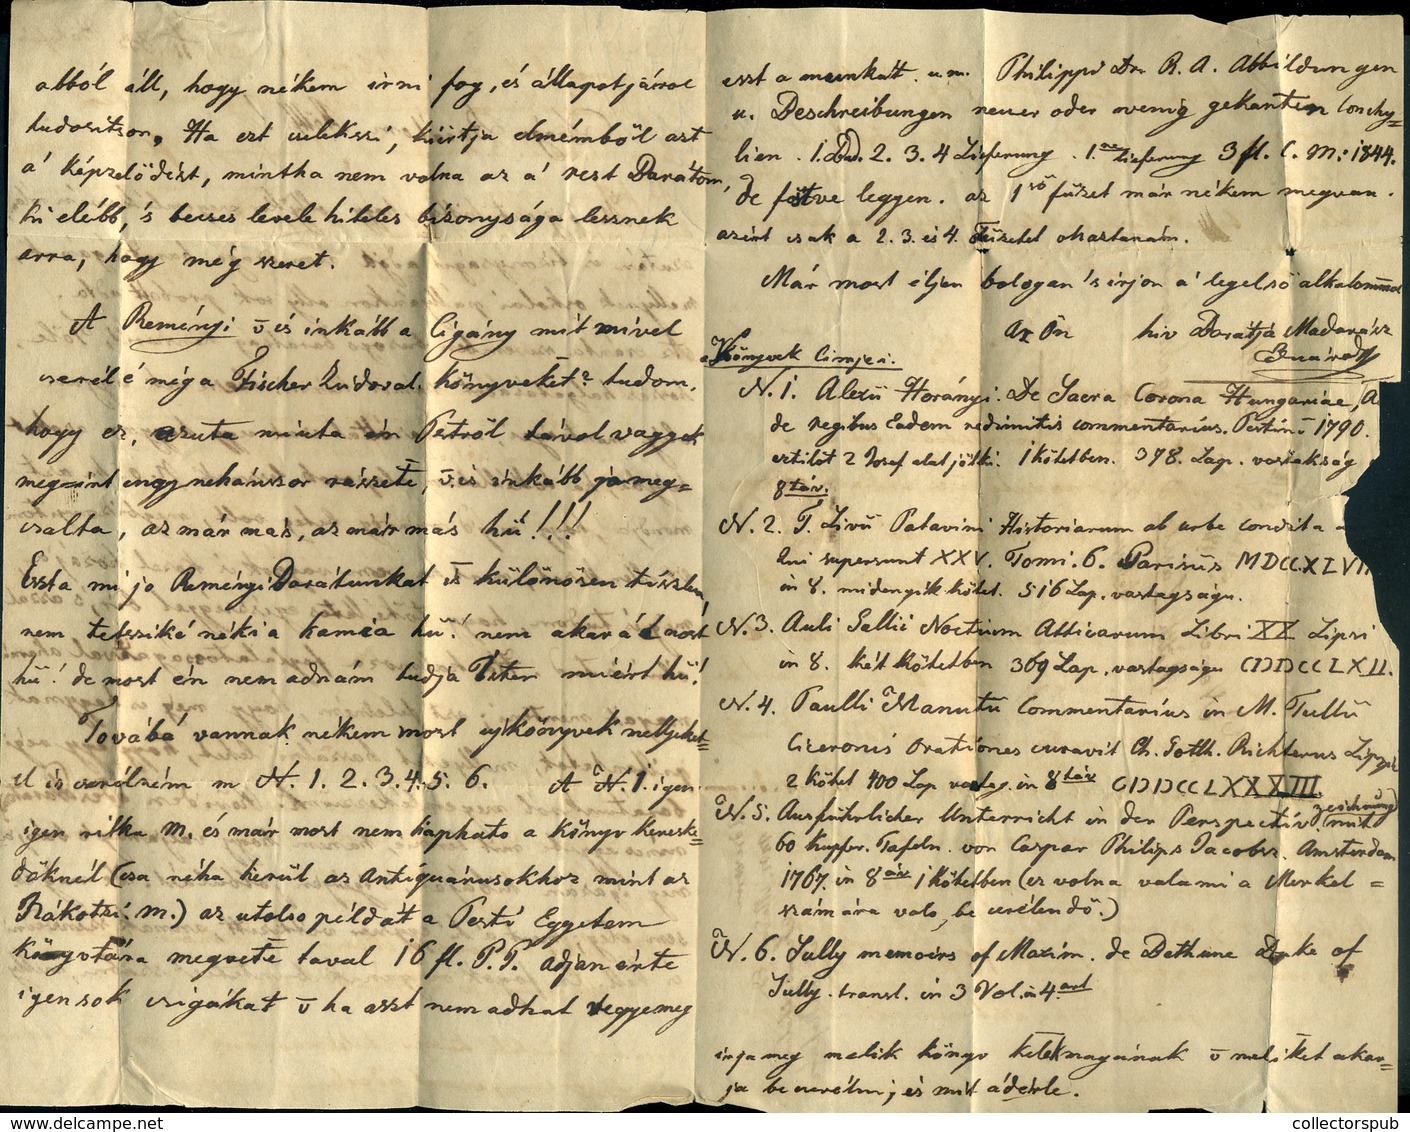 abból áll, hogy nékem irni fog, és állapotjárrol
tudositson. Ha ezt cselekszi, kiirtja elmémböl azt
á képzelödést, mintha nem volna az a' rest Barátom,
ki elébb, 's becses levele hiteles bizonysága lessnek
arra, hogy még szeret.
A Reményi v és inkább a Cigány mit mivel
cserél é még a Fischer Luidoval könyveket? tudom,
hogy ez, azuta miuta én Peströl távol vagyok
megint engy nehánszor részete, v. és inkább ja meg=
csalta, az már más, az már más hü!!!
Eszta mi jo Reményi Barátunkat is különösen tisztelem,
nem tetsziké néki a kaméa hü! nem akará most
hü! de most én nem adnám tudja Péter miért hü!
Továbá vannak nékem most uj könyvek mellyeket=
el is cserélném m N. 1. 2. 3. 4. 5. 6. A N. 1. igen
igen ritka M. és már most nem kapható a könyv kereske=
döknél (csa néha kerül az Antiquáriusokhoz mint az
Rákotzi. M.) az utolso példát a Pesti Eggetem
könyvtára megvette taval 16 fl. P. P. adjan érte
igen sok csigákat v ha aszt nem adhat vegye meg
eszt a munkatt. u. m. Philippi Dr. R. A. Abbildungen
u. Beschreibungen neuer oder wenig gekanten Conchy=
lien. 1. Bd. 2. 3. 4 Lieferung. 1. Lieferung 3 fl. C. M.: 1844.
de fötve legyen. az 1sö füzet már nékem megvan.
azért csak a 2. 3. és 4. Füzetet ohaztanám.
Már most éljen bologan 's irjon a' legelsö alkalommal
Az Ön hiv Barátja Madarász
Eduárd
a Könyvek Cimjei.
N. 1. Alexii Horányi. De Sacra Corona Hungariae, A
de regibus Eadem redimitis commentarius. Pestini 1790.
eztilöt 2 Josef alat jötki. 1 kötetben. 378. Lap. vastakság
8táv.
N. 2. T. Livii Patavini Historiarum ab urbe condita
qui supersunt XXV. Tomi. 6. Parisiis MDCCXLVII
in 8. midengyik kötet. 516 Lap. vastagságu.
N. 3. Auli Gellii Noctium Atticarum Libri XX Lipsi
in 8. két kötetben 369 Lap. vastagságu CIƆIƆCCLXII.
N. 4. Paulli Manutii Commentarius in M. Tullii
Ciceronis orationes curavit Ch. Gotth. Richterus Lipzi
2 kötet 400 Lap vastag. in 8táv CIƆIƆCCLXXXIII.
N. 5. Ausführlicher Unterricht in der Perspectiv zeichnung mit
60 Kupfer. Tafeln. von Caspar Philips Jacobsz. Amsterdam
1767. in 8áv 1 kötetben (ez volna valami a Merkel=
számára való, be cserélendö.)
N. 6. Sully memoirs of Maxim. de Bethune Duke of
Sully. transl. in 3 Vol. in 4art
irja meg melik könyv kellek magának v meliket akar=
ja be cserélni; és mit ád érte.